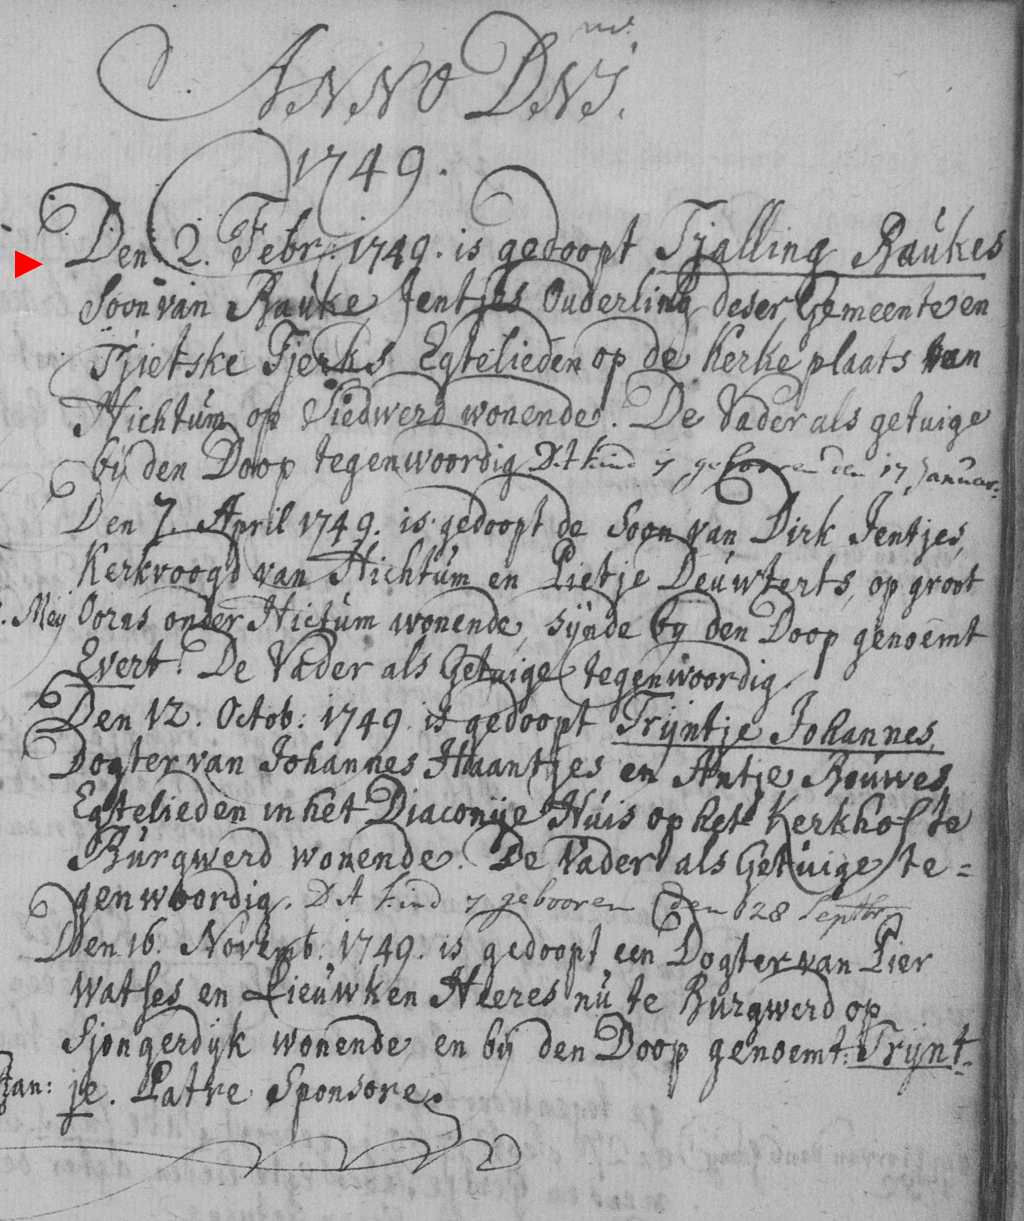 Anno Dni.
1749.
Den 2. Febr. 1749. is gedoopt Tjalling Baukes
Soon van Bauke Jentjes Ouderling deser Gemeente en
Tjietske Tjerks Egtelieden op de Kerke plaats van
Hichtum op Siedwerd wonende. De Vader als getuige
bij den Doop tegenwoordig Dit kind is gebooren den 17 Januar:
Den 7. April 1749. is gedoopt de Soon van Dirk Jentjes,
Kerkvoogd van Hichtum en Pietje Deuwterts, op groot
Mey Oorns onder Hictum wonende, sijnde bij den Doop genoemt
Evert. De Vader als Getuige tegenwoordig.
Den 12. Octob: 1749. is gedoopt Trijntje Johannes,
Dogter van Johannes Haantjes en Antje Bouwes,
Egtelieden in het Diaconije Huis op het Kerkhof te
Burgwerd wonende. De Vader als Getuige te=
genwoordig. Dit kind is gebooren den 28 Septbr
Den 16. Novemb. 1749. is gedoopt een Dogter van Pier
Watses en Lieuwken Heeres nu te Burgwerd op
Sjongerdijk wonende en bij den Doop genoemt: Trijnt-
Jan: je. Patre Sponsore.